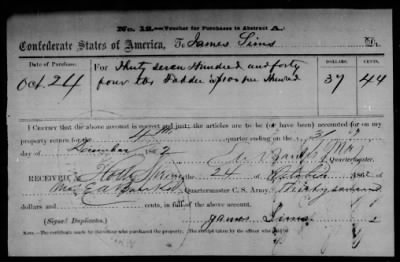 No. 12.—Voucher for Purchases to Abstract A.
Confederate States of America, To James Sims Dr.
Date of Purchase. DOLLARS. CENTS.
Oct 24 For Thirty seven Hundred and forty
four lbs Fodder @ 100 per Hundred 37 44
I CERTIFY that the above account is correct and just; the articles are to be (or have been) accounted for on my
property return for the quarter ending on the 31
day of December 1862 Quartermaster.
RECEIVED at Holly Springs the 24 of October 1862 of
Quartermaster C. S. Army, Thirty seven
dollars and cents, in full of the above account.
(Signed Duplicates.) James Sims
NOTE.—The certificate made by the officer who purchased the property. The receipt taken by the officer who